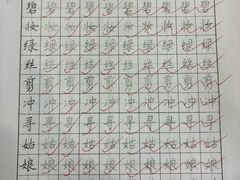 碧 碧 碧 碧 碧 碧 碧 碧
妆 妆 妆 妆 妆 妆 妆 妆
绿 绿 绿 绿 绿 绿 绿 绿
丝 丝 丝 丝 丝 丝 丝 丝
剪 剪 剪 剪 剪 剪 剪 剪
冲 冲 冲 冲 冲 冲 冲 冲
寻 寻 寻 寻 寻 寻 寻 寻
姑 姑 姑 姑 姑 姑 姑 姑
娘 娘 娘 娘 娘 娘 娘 娘